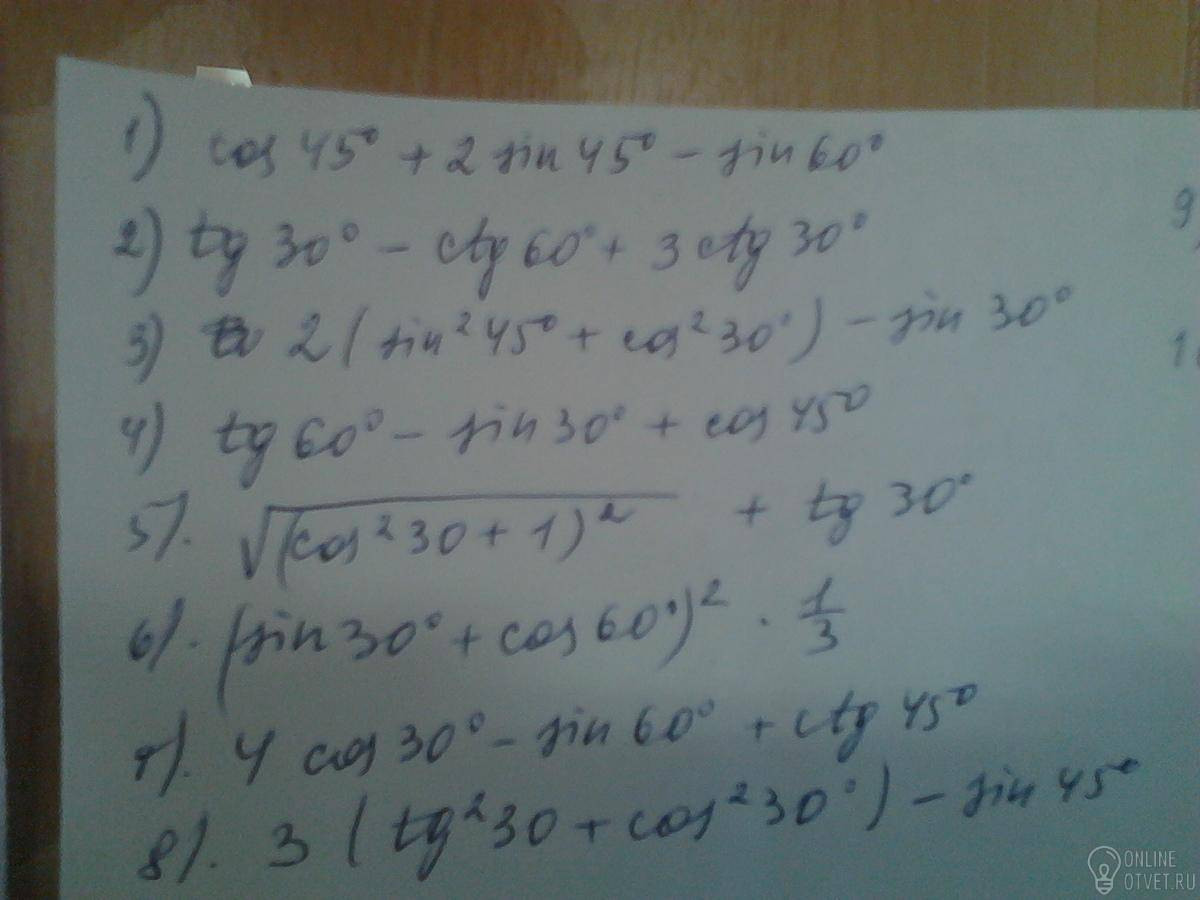 1) cos 45° + 2 sin 45° - sin 60°
2) tg 30° - ctg 60° + 3 ctg 30°
9
3) 2 ( sin² 45° + cos² 30° ) - sin 30°
1
4) tg 60° - sin 30° + cos 45°
5). √(cos² 30 + 1)² + tg 30°
6). (sin 30° + cos 60°)² · 1/3
7). 4 cos 30° - sin 60° + ctg 45°
8). 3 ( tg² 30 + cos² 30° ) - sin 45°
ONLINE
OTVET.RU